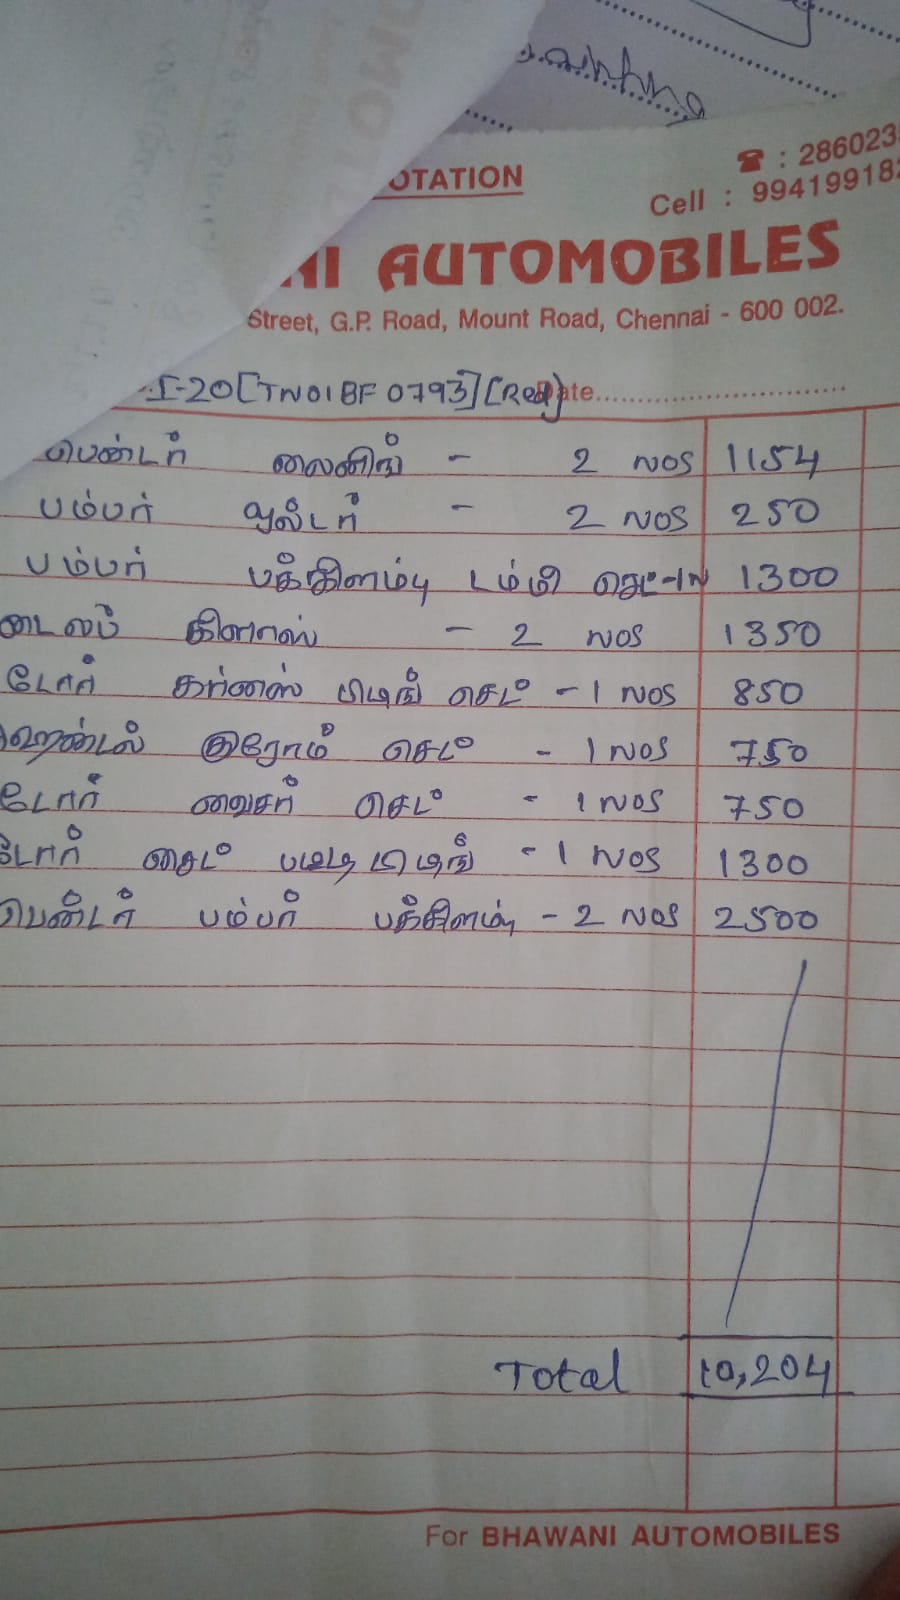 OTATION
☎ : 2860235
Cell : 99419918
NI AUTOMOBILES
Street, G.P. Road, Mount Road, Chennai - 600 002.
I-20 [TN01BF 0793] (Red) Date
பெண்டர் லைனிங் - 2 NOS 1154
பம்பர் 2 NOS 250
பம்பர் பக்கிளம்பு டம்மி செட்-1N 1300
டைலப் கிளாஸ் - 2 NOS 1350
டோர் கர்னஸ் பிடிங் செட் - 1 NOS 850
ஹண்டல் குரோம் செட் - 1 NOS 750
டோர் வைசர் செட் - 1 NOS 750
டோர் சைட் பீடிங் - 1 NOS 1300
பெண்டர் பம்பர் பக்கிளம்பு - 2 NOS 2500
Total 10,204
For BHAWANI AUTOMOBILES